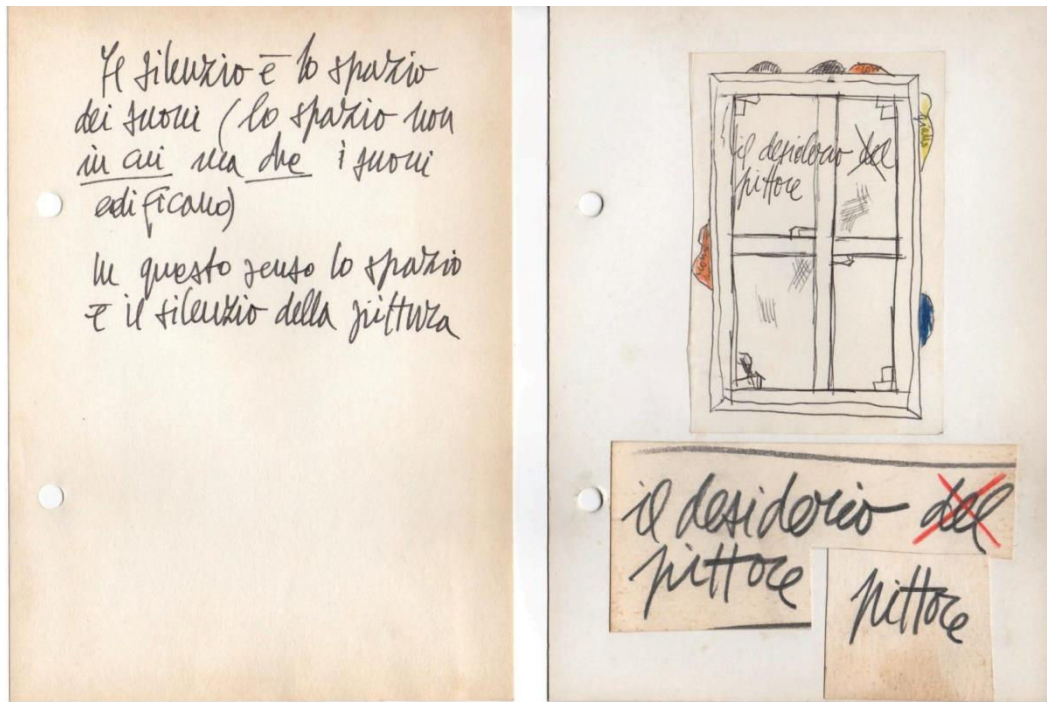 Il silenzio è lo spazio
dei suoni (lo spazio non
in cui ma che i suoni
edificano)
In questo senso lo spazio
è il silenzio della pittura
il desiderio del
pittore
giallo
il desiderio del
pittore
pittore